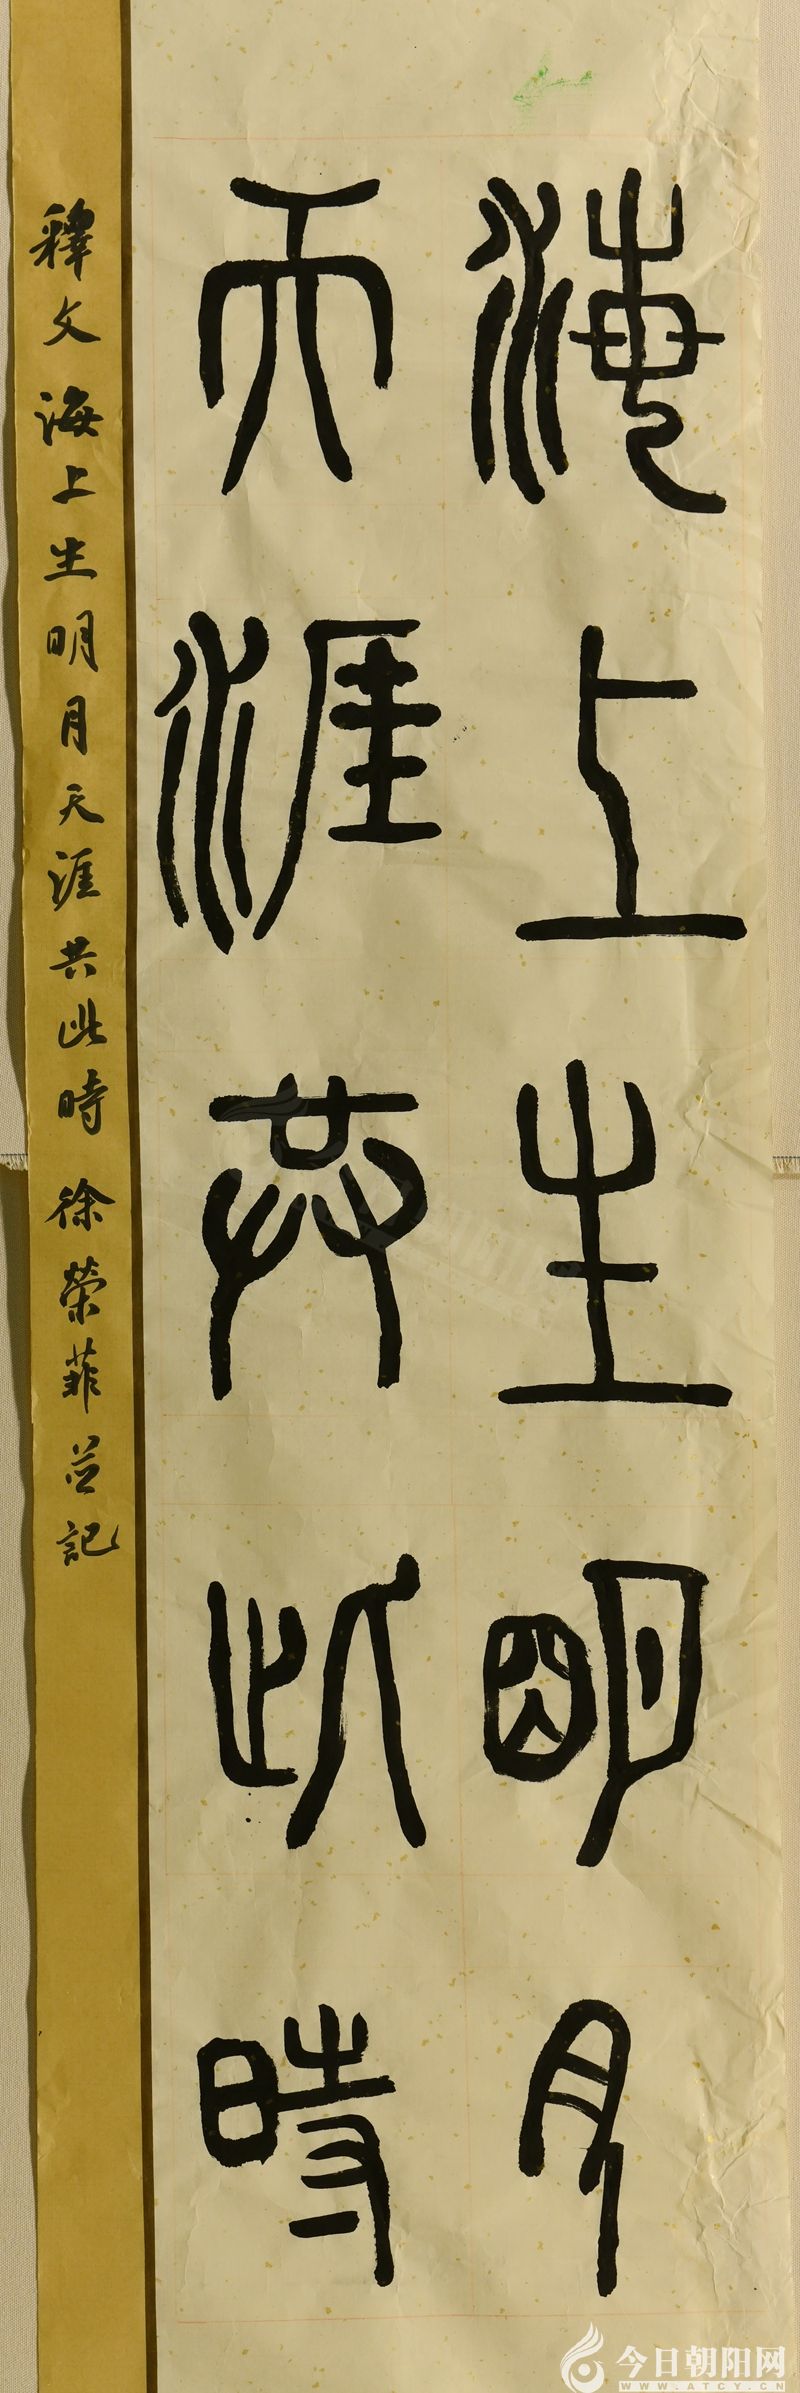 海上生明月
天涯共此時
釋文 海上生明月天涯共此時 徐榮菲并記
今日朝阳网
WWW.ATCY.CN